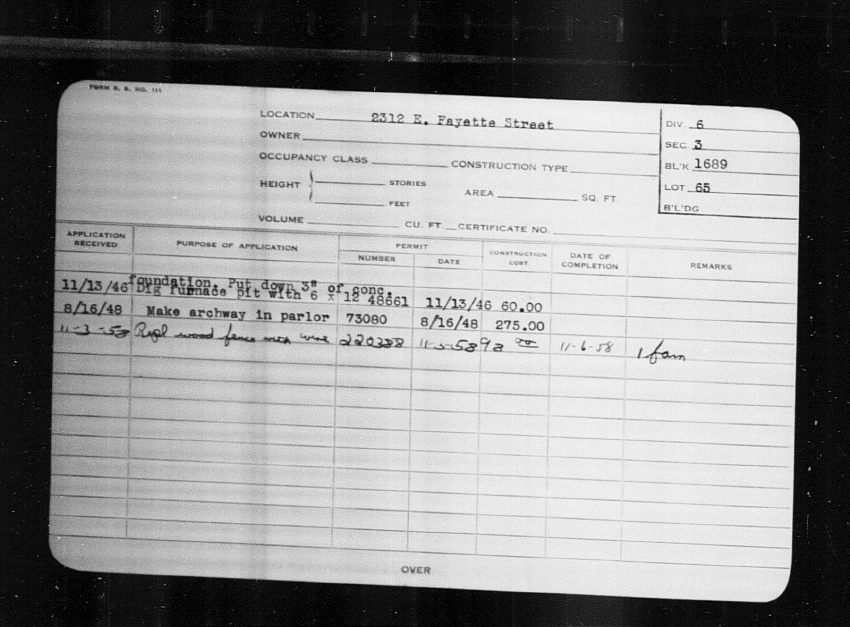 FORM B. S. NO. 111
LOCATION 2312 E. Fayette Street
DIV. 6
OWNER
SEC. 3
OCCUPANCY CLASS CONSTRUCTION TYPE
BL'K 1689
HEIGHT STORIES AREA SQ. FT.
LOT 65
FEET
B'L'DG
VOLUME CU. FT. CERTIFICATE NO.
APPLICATION RECEIVED PURPOSE OF APPLICATION PERMIT NUMBER DATE CONSTRUCTION COST DATE OF COMPLETION REMARKS
foundation. Put down 3" of conc.
11/13/46 Dig furnace pit with 6 x 12 48661 11/13/46 60.00
8/16/48 Make archway in parlor 73080 8/16/48 275.00
11-3-58 Repl wood fence with wire 11-6-58 1 fam
OVER